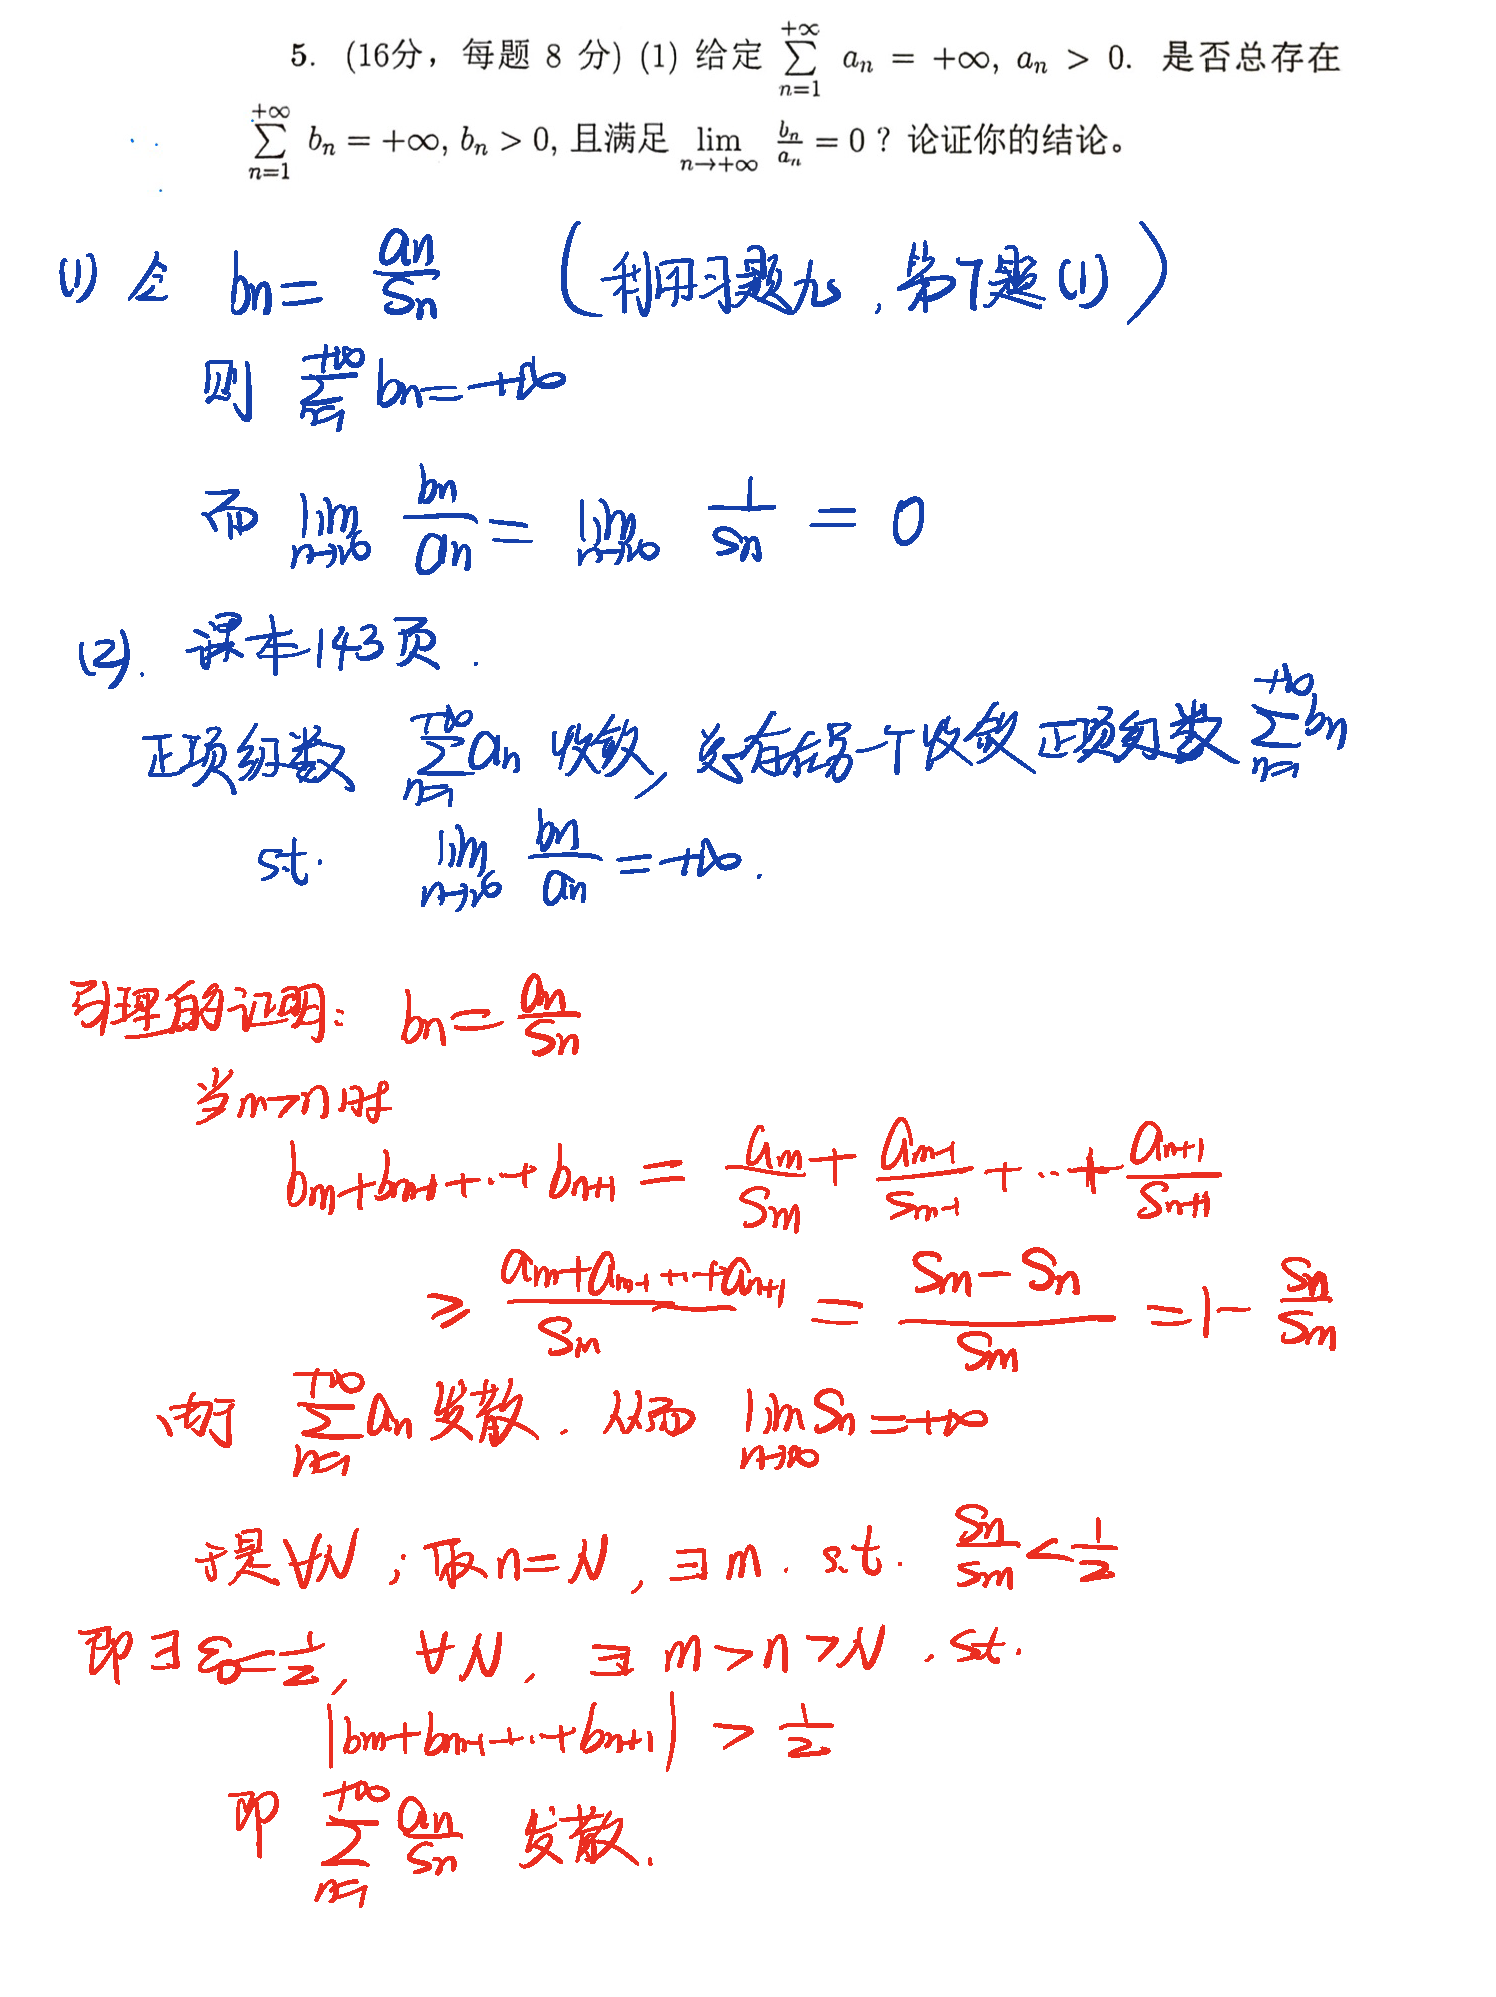 5. (16分，每题 8 分) (1) 给定 $\sum_{n=1}^{+\infty} a_n = +\infty, a_n > 0.$ 是否总存在
$\sum_{n=1}^{+\infty} b_n = +\infty, b_n > 0,$ 且满足 $\lim_{n\to+\infty} \frac{b_n}{a_n} = 0$？论证你的结论。
(1) 令 $b_n = \frac{a_n}{S_n}$ (利用习题九，第7题(1))
则 $\sum_{n=1}^{+\infty} b_n = +\infty$
而 $\lim_{n\to+\infty} \frac{b_n}{a_n} = \lim_{n\to+\infty} \frac{1}{S_n} = 0$
(2). 课本143页.
正项级数 $\sum_{n=1}^{+\infty} a_n$ 收敛, 总存在另一个收敛正项级数 $\sum_{n=1}^{+\infty} b_n$
s.t. $\lim_{n\to+\infty} \frac{b_n}{a_n} = +\infty.$
引理的证明: $b_n = \frac{a_n}{S_n}$
当m>n时
$b_m + b_{m-1} + \cdots + b_{n+1} = \frac{a_m}{S_m} + \frac{a_{m-1}}{S_{m-1}} + \cdots + \frac{a_{n+1}}{S_{n+1}}$
$\geqslant \frac{a_m + a_{m-1} + \cdots + a_{n+1}}{S_m} = \frac{S_m - S_n}{S_m} = 1 - \frac{S_n}{S_m}$
由于 $\sum_{n=1}^{+\infty} a_n$ 发散. 从而 $\lim_{n\to\infty} S_n = +\infty$
于是 ∀N; 取 n=N, ∃ m. s.t. $\frac{S_n}{S_m} < \frac{1}{2}$
即 ∃ $\varepsilon_0 = \frac{1}{2}$, ∀N, ∃ m>n>N. s.t.
$|b_m + b_{m-1} + \cdots + b_{n+1}| > \frac{1}{2}$
即 $\sum_{n=1}^{+\infty} \frac{a_n}{S_n}$ 发散.